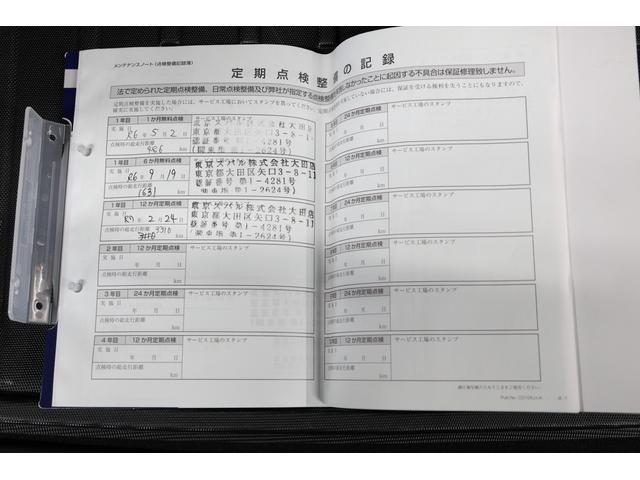 メンテナンスノート（点検整備記録簿）
定期点検整備の記録
法で定められた定期点検整備、日常点検整備及び弊社が指定する点検整備を実施しなかったことに起因する不具合は保証修理致しません。
定期点検整備を実施した場合には、サービス工場においてスタンプを貰ってください。
確実に実施してください。
保証を受ける権利を失うことにもなりますので、
1年目 1か月無料点検 サービス工場のスタンプ
実施日
R6年 5月 2日
点検時の総走行距離
486 km
東京スバル株式会社大田店
東京都大田区矢口3-8-11
認証番号 第1-4281号
(関東生 第1-2624号)
1年目 6か月無料点検 サービス工場のスタンプ
実施日
R6年 9月 19日
点検時の総走行距離
1631 km
東京スバル株式会社大田店
東京都大田区矢口3-8-11
認証番号 第1-4281号
第1-2624号)
1年目 12か月定期点検 サービス工場のスタンプ
実施日
R7年 2月 24日
点検時の総走行距離
3310 km
東京スバル株式会社大田店
東京都大田区矢口3-8-11
認証番号 第1-4281号
第1-2624号)
2年目 12か月定期点検 サービス工場のスタンプ
実施日
年 月 日
点検時の総走行距離
km
3年目 24か月定期点検 サービス工場のスタンプ
実施日
年 月 日
点検時の総走行距離
km
4年目 12か月定期点検 サービス工場のスタンプ
実施日
年 月 日
点検時の総走行距離
km
24か月定期点検 サービス工場のスタンプ
年 月 日
km
12か月定期点検 サービス工場のスタンプ
年 月 日
km
24か月定期点検 サービス工場のスタンプ
年 月 日
km
12か月定期点検 サービス工場のスタンプ
年 月 日
km
24か月定期点検 サービス工場のスタンプ
年 月 日
km
12か月定期点検 サービス工場のスタンプ
年 月 日
km